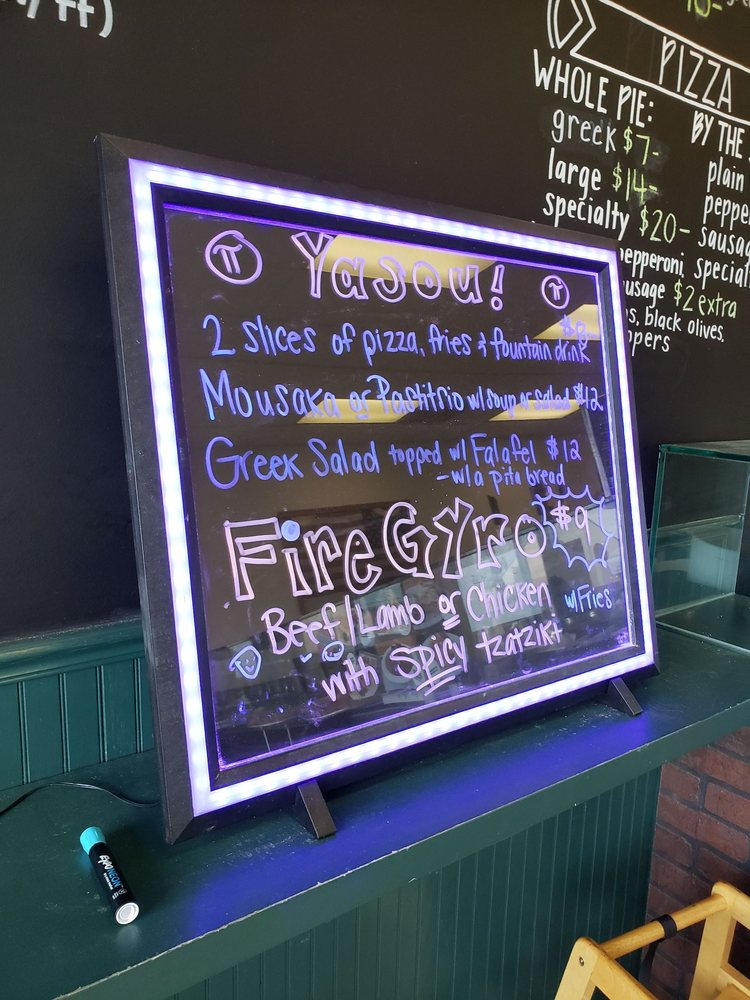 PIZZA
WHOLE PIE:
greek $7-
large $14-
specialty $20-
pepperoni,
sausage $2 extra
black olives,
BY THE
plain
sausage
π Yasou! π
2 slices of pizza, fries & fountain drink
Mousaka or Pastitsio w/ soup or salad $12
Greek Salad topped w/ Falafel $12
- w/ a pita bread
Fire Gyro $9
Beef/Lamb or Chicken w/ Fries
with spicy tzatziki
EXPO NEON